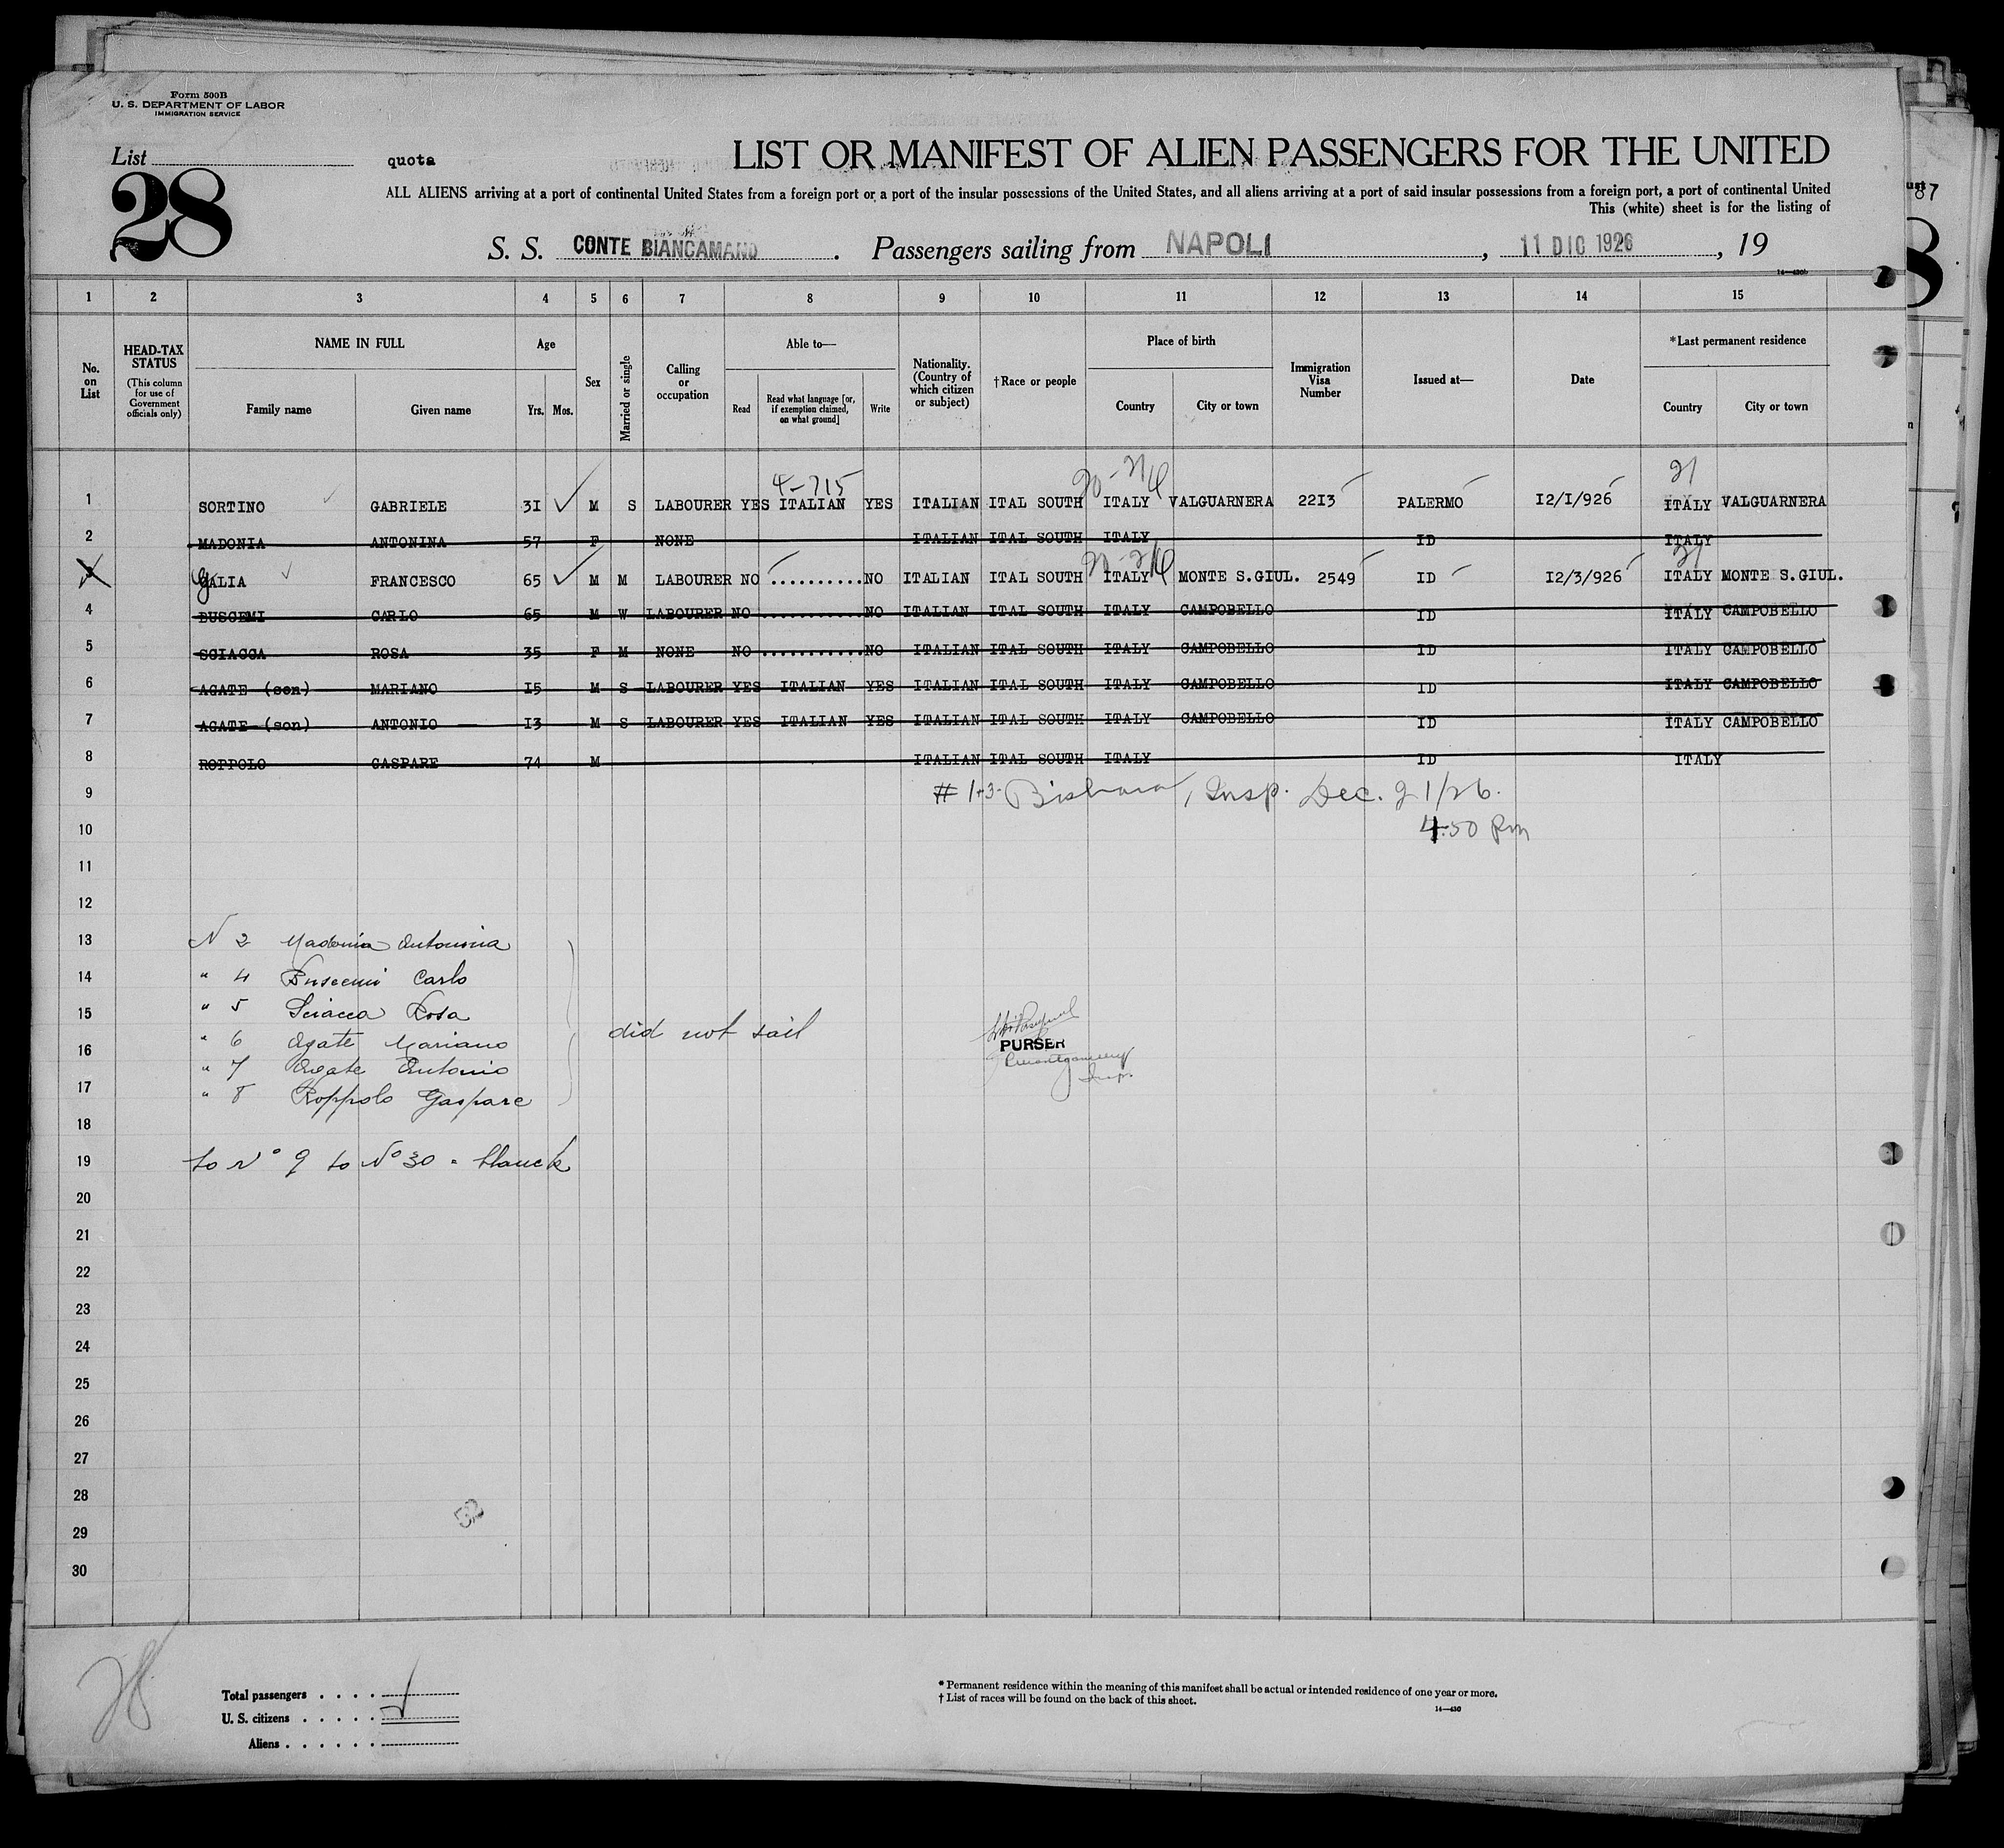 Form 500B
U. S. DEPARTMENT OF LABOR
IMMIGRATION SERVICE
List
quota
28
LIST OR MANIFEST OF ALIEN PASSENGERS FOR THE UNITED
ALL ALIENS arriving at a port of continental United States from a foreign port or a port of the insular possessions of the United States, and all aliens arriving at a port of said insular possessions from a foreign port, a port of continental United
This (white) sheet is for the listing of
S. S. CONTE BIANCAMANO . Passengers sailing from NAPOLI , 11 DIC 1926 , 19
1 2 3 4 5 6 7 8 9 10 11 12 13 14 15
No. on List
HEAD-TAX STATUS (This column for use of Government officials only)
NAME IN FULL
Family name Given name
Age
Yrs. Mos.
Sex
Married or single
Calling or occupation
Able to—
Read
Read what language [or, if exemption claimed, on what ground]
Write
Nationality. (Country of which citizen or subject)
†Race or people
Place of birth
Country City or town
Immigration Visa Number
Issued at—
Date
*Last permanent residence
Country City or town
4-715 20-214 21
1 SORTINO GABRIELE 3I M S LABOURER YES ITALIAN YES ITALIAN ITAL SOUTH ITALY VALGUARNERA 22I3 PALERMO I2/I/926 ITALY VALGUARNERA
2 MADONIA ANTONINA 57 F NONE ITALIAN ITAL SOUTH ITALY ID ITALY
3 GALIA FRANCESCO 65 M M LABOURER NO .......... NO ITALIAN ITAL SOUTH ITALY MONTE S.GIUL. 2549 ID I2/3/926 ITALY MONTE S.GIUL.
4 BUSCEMI CARLO 65 M W LABOURER NO .......... NO ITALIAN ITAL SOUTH ITALY CAMPOBELLO ID ITALY CAMPOBELLO
5 SCIACCA ROSA 35 F M NONE NO .......... NO ITALIAN ITAL SOUTH ITALY CAMPOBELLO ID ITALY CAMPOBELLO
6 AGATE (son) MARIANO I5 M S LABOURER YES ITALIAN YES ITALIAN ITAL SOUTH ITALY CAMPOBELLO ID ITALY CAMPOBELLO
7 AGATE (son) ANTONIO I3 M S LABOURER YES ITALIAN YES ITALIAN ITAL SOUTH ITALY CAMPOBELLO ID ITALY CAMPOBELLO
8 ROPPOLO GASPARE 74 M ITALIAN ITAL SOUTH ITALY ID ITALY
9 # 1+3- Bishara, Insp. Dec. 21/26.
10 4:50 pm
11
12
13 N 2 Madonia Antonina
14 " 4 Buscemi Carlo
15 " 5 Sciacca Rosa
did not sail
16 " 6 Agate Mariano
PURSER
" 7 Agate Antonio
17 " 8 Roppolo Gaspare
Insp.
18
19 to N° 9 to N° 30 - blanck
20
21
22
23
24
25
26
27
28
29
30
28
Total passengers
U. S. citizens
Aliens
* Permanent residence within the meaning of this manifest shall be actual or intended residence of one year or more.
† List of races will be found on the back of this sheet.
14—430